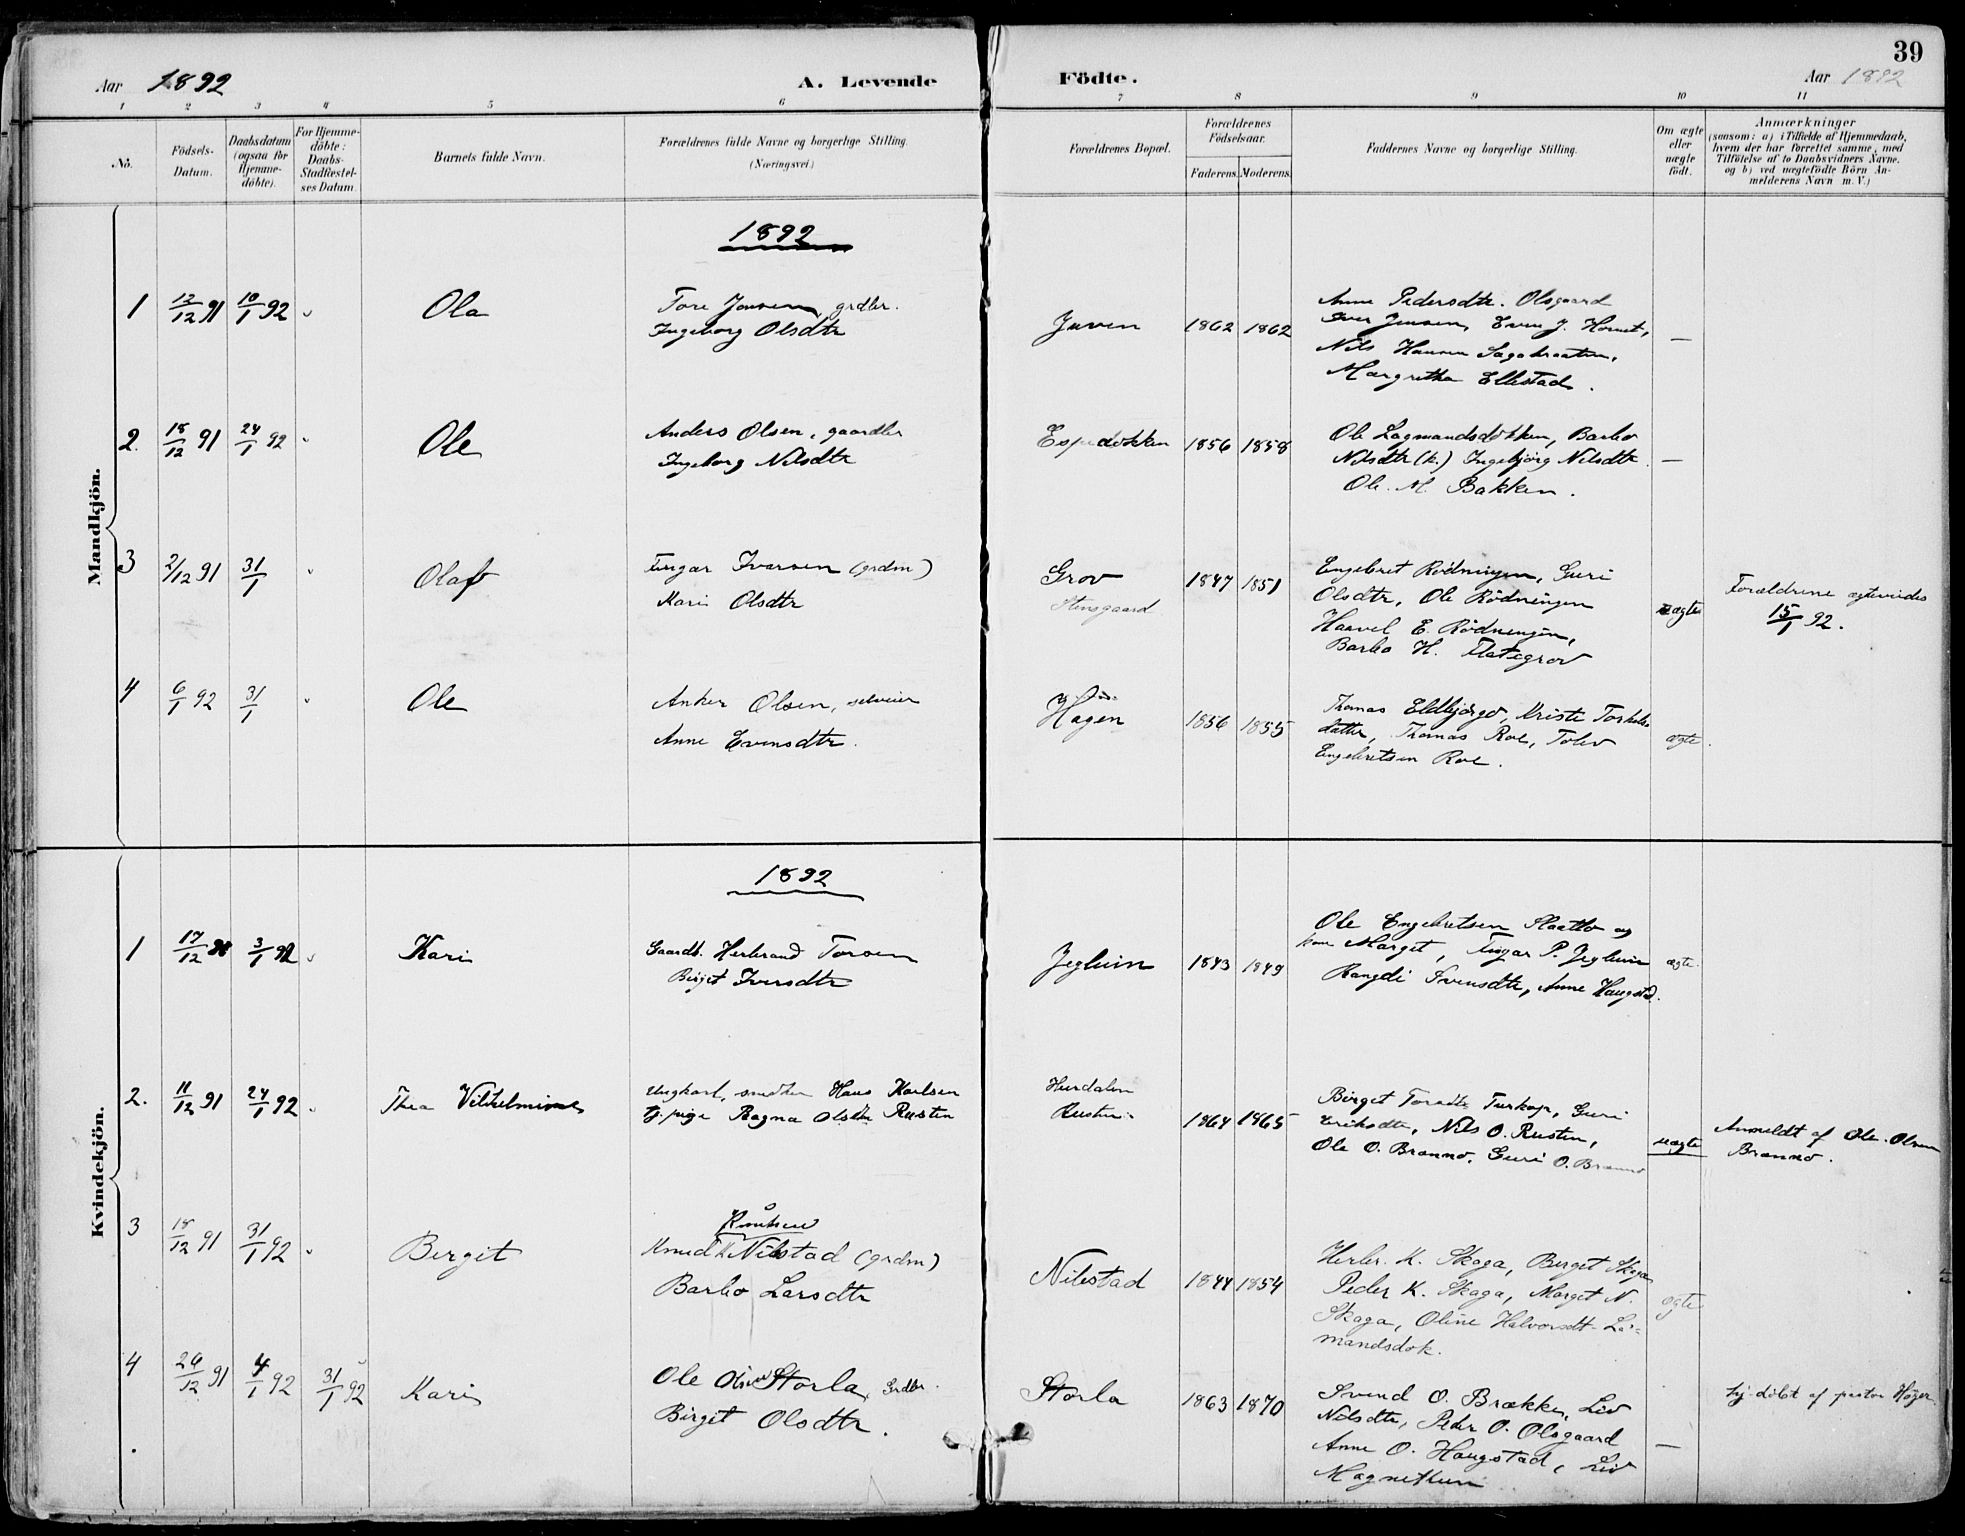 39
Aar 1892
A. Levende
Födte.
Aar 1892
1 2 3 4 5 6 7 8 9 10 11
No.
Födsels-Datum.
Daabsdatum (ogsaa for Hjemme-döbte).
For Hjemme-döbte: Daabs-Stadfæstel-ses Datum.
Barnets fulde Navn.
Forældrenes fulde Navne og borgerlige Stilling.
(Næringsvei.)
Forældrenes Bopæl.
Forældrenes Födselsaar.
Faderens. Moderens.
Faddernes Navne og borgerlige Stilling.
Om ægte eller uægte födt.
Anmærkninger
(saasom: a) i Tilfælde af Hjemmedaab,
hvem der har forrettet samme, med
Tilföielse af to Daabsvidners Navne.
og b) ved uægtefödte Börn An-
melderens Navn m. V.)
Mandkjön.
1892
1 12/12 91 10/1 92 Ola
Tore Jensen, grdbr.
Ingeborg Olsdtr
Juven 1862 1862
Anne Pedersdtr. Olsgaard
Iver Jensen, Even J.
Nils Hansen Sagabraaten,
Margretha Ellestad.
—
2. 18/12 91 24/1 92 Ole
Anders Olsen, gaardbr
Ingeborg Nilsdtr
Espedokken 1856 1858
Ole Lagmandsdokken, Barbo
Nilsdtr (k.) Ingebjörg Nilsdtr.
Ole M. Bakken.
—
3 2/12 91 31/1 Olaf
Tingar Ivarsen (grdm)
Kari Olsdtr
Grov
Stensgaard
1847 1851
Engebret Rödningen, Guri
Olsdtr, Ole Rödningen
Haavel E. Rödningen,
Barbo H. Flategrov
ægte
Forældrene ægteviedes
15/1 92.
4 6/1 92 31/1 Ole
Anker Olsen, selveier
Anne Evensdtr.
Hagen 1856 1855
Thomas Eldbjørgo, Kristi Torkels-
datter, Thomas Roe, Tolev
Engebretsen Roe.
ægte.
Kvindekjön.
1892
1 17/12 3/1 92 Kari
Gaardb. Herbrand Torsen
Birgit Iversdtr
Jegluin 1843 1849
Ole Engebretsen Slaatto og
kone Marget, Tingar P. Jegluin
Rangdi Svensdtr, Anne Haugstd.
ægte.
2. 11/12 91 24/1 92 Thea Vilhelmine
Ungkarl, Hans Karlsen
tj. pige Ragna Olsdtr Rusten
Hurdalen
Rusten
1864 1865
Birget Toradtr, Guri
Eriksdtr, Nils O. Rusten,
Ole O. Brænno, Guri O. Brænno
uægte
Anmeldt af Ole Olsen
Brænno.
3 18/12 91 31/1 92 Bergit
Knutsen
Knud K Nilstad (grdm)
Barbo Larsdtr
Nilestad 1844 1854
Herbr. K. Skaga, Berget Skaga
Peder K. Skaga, Marget N.
Skaga, Oline Halvorsdt. La-
mandsdok.
ægte
4 26/12 91 4/1 92 31/1 92 Kari
Ole Olsen Storla, Grdbr.
Birget Olsdtr.
Storla 1863 1870
Svend O. Brække, Liv
Nilsdtr, Peder O. Olsgaard
Anne O. Haugstad, Liv
Magnethun
—
hj. döbt af pastor Höyer